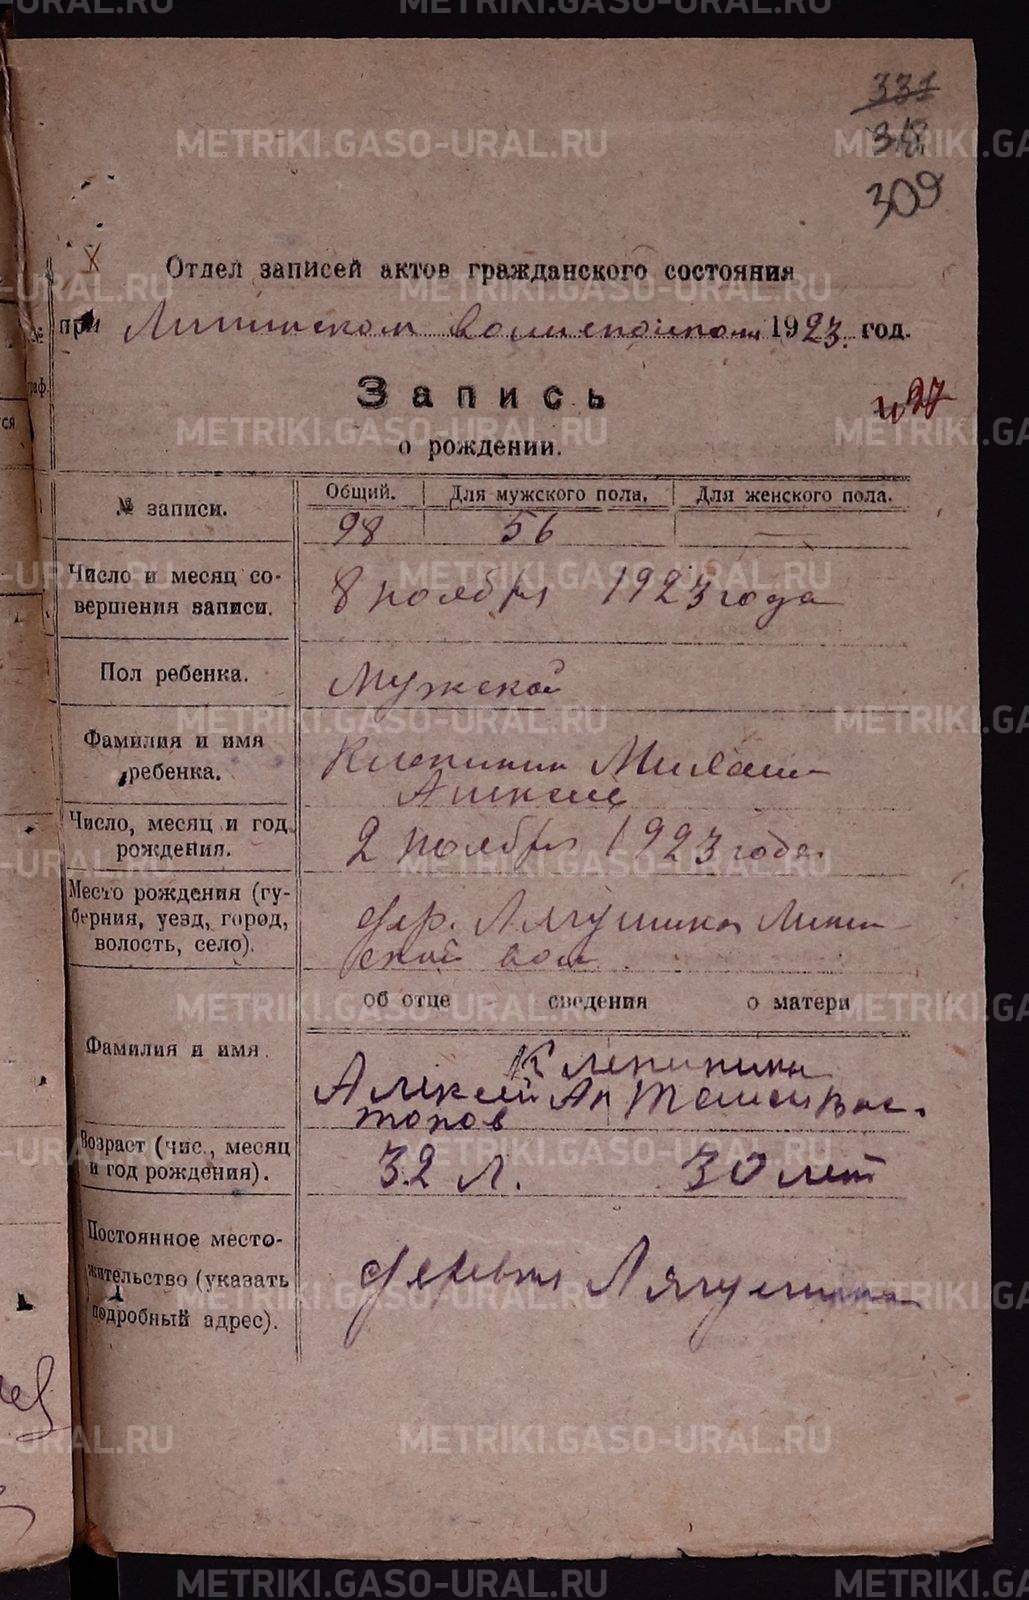 331
318
309
Отдел записей актов гражданского состояния
при Липинском волисполкоме 1923. год.
Запись
№ 27
о рождении.
№ записи.
Общий. Для мужского пола. Для женского пола.
98 56 —
Число и месяц со-
вершения записи.
8 ноября 1923 года
Пол ребенка.
Мужской
Фамилия и имя
ребенка.
Клепинин Михаил
Алексее
Число, месяц и год
рождения.
2 ноября 1923 года
Место рождения (гу-
берния, уезд, город,
волость, село).
дер. Лягушина Липин-
ской вол.
об отце сведения о матери
Фамилия и имя.
Клепинины
Алексей Ан
тонов
Возраст (чис., месяц
и год рождения).
32 л. 30 лет
Постоянное место-
жительство (указать
подробный адрес).
деревня Лягушина
METRIKI.GASO-URAL.RU